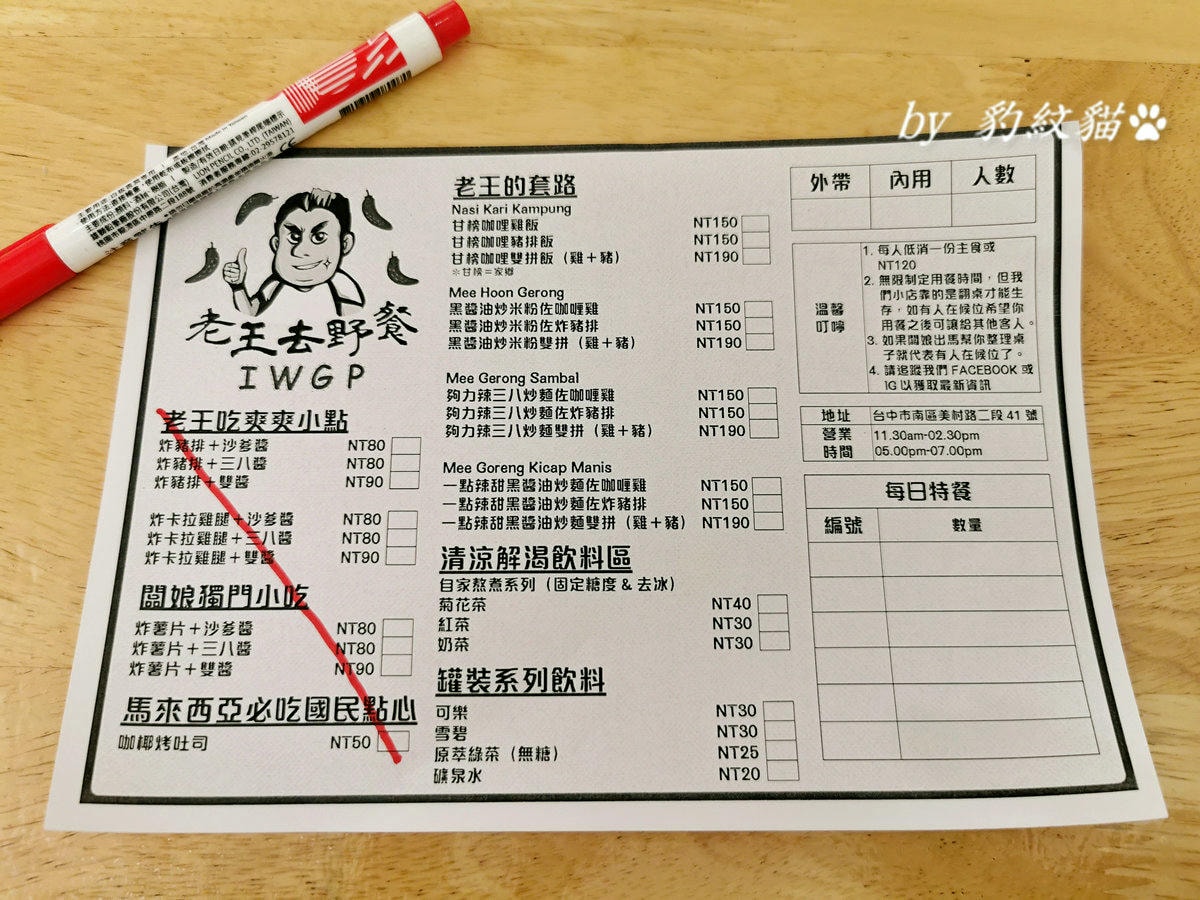 by 豹紋貓
Made in Taiwan
LION PENCIL CO., LTD. (TAIWAN)
老王去野餐
IWGP
老王吃爽爽小點
炸豬排＋沙爹醬 NT80
炸豬排＋三八醬 NT80
炸豬排＋雙醬 NT90
炸卡拉雞腿＋沙爹醬 NT80
炸卡拉雞腿＋三八醬 NT80
炸卡拉雞腿＋雙醬 NT90
闆娘獨門小吃
炸薯片＋沙爹醬 NT80
炸薯片＋三八醬 NT80
炸薯片＋雙醬 NT90
馬來西亞必吃國民點心
咖椰烤吐司 NT50
老王的套路
Nasi Kari Kampung
甘榜咖哩雞飯 NT150
甘榜咖哩豬排飯 NT150
甘榜咖哩雙拼飯（雞＋豬） NT190
※甘榜＝家鄉
Mee Hoon Gerong
黑醬油炒米粉佐咖喱雞 NT150
黑醬油炒米粉佐炸豬排 NT150
黑醬油炒米粉雙拼（雞＋豬） NT190
Mee Gerong Sambal
夠力辣三八炒麵佐咖喱雞 NT150
夠力辣三八炒麵佐炸豬排 NT150
夠力辣三八炒麵雙拼（雞＋豬） NT190
Mee Goreng Kicap Manis
一點辣甜黑醬油炒麵佐咖喱雞 NT150
一點辣甜黑醬油炒麵佐炸豬排 NT150
一點辣甜黑醬油炒麵雙拼（雞＋豬） NT190
清涼解渴飲料區
自家熬煮系列（固定糖度 & 去冰）
菊花茶 NT40
紅茶 NT30
奶茶 NT30
罐裝系列飲料
可樂 NT30
雪碧 NT30
原萃綠茶（無糖） NT25
礦泉水 NT20
外帶 內用 人數
溫馨
叮嚀
1. 每人低消一份主食或
NT120
2. 無限制定用餐時間，但我
們小店靠的是翻桌才能生
存，如有人在候位希望你
用餐之後可讓給其他客人。
3. 如果闆娘出馬幫你整理桌
子就代表有人在候位了。
4. 請追蹤我們 FACEBOOK 或
IG 以獲取最新資訊
地址 台中市南區美村路二段 41 號
營業 11.30am-02.30pm
時間 05.00pm-07.00pm
每日特餐
編號 數量